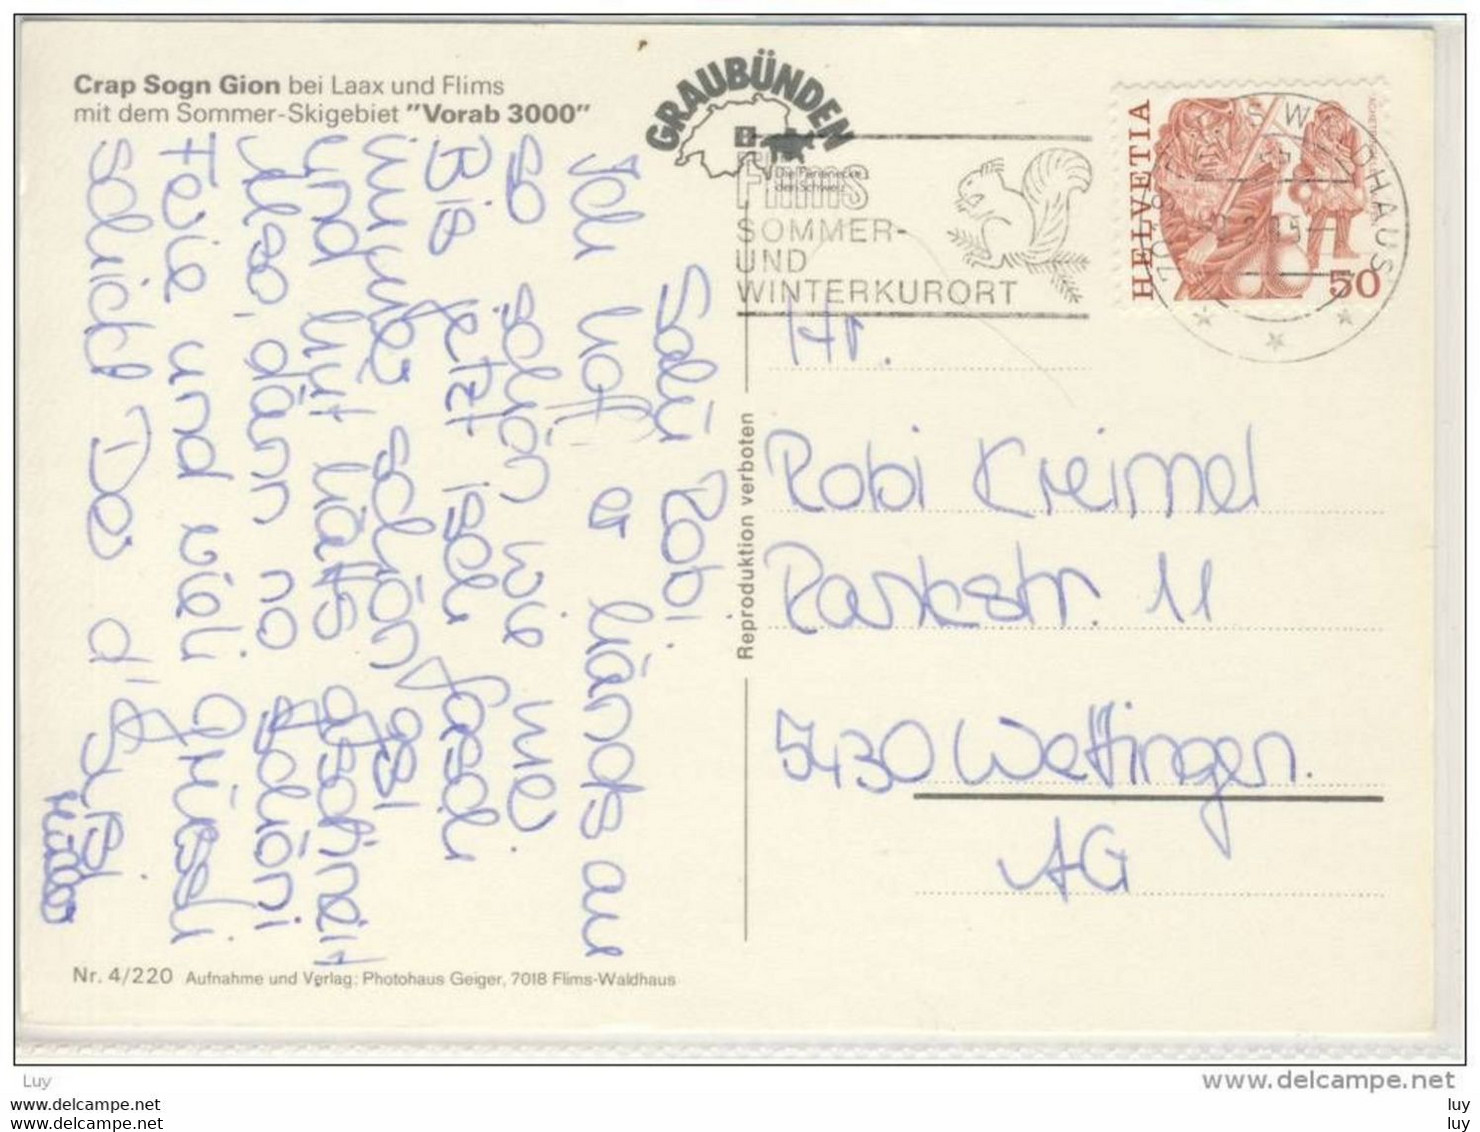 Crap Sogn Gion bei Laax und Flims
mit dem Sommer-Skigebiet "Vorab 3000"
GRAUBÜNDEN
Die Ferienecke
der Schweiz
Flims
SOMMER-
UND
WINTERKURORT
HELVETIA
50
WALDHAUS
Salü Robi
Ich hoff' er händs au
so schön wie mei
Bis jetzt isch
immer schön gsi
und hüt häts gschneit
Also, dänn no schöni
Ferie und vieli Grüessli
schickt Der d'
Reproduktion verboten
Hr.
Robi Kreimel
Parkstr. 11
5430 Wettingen.
AG
Nr. 4/220 Aufnahme und Verlag: Photohaus Geiger, 7018 Flims-Waldhaus
Luy
www.delcampe.net
luy
luy
luy
luy